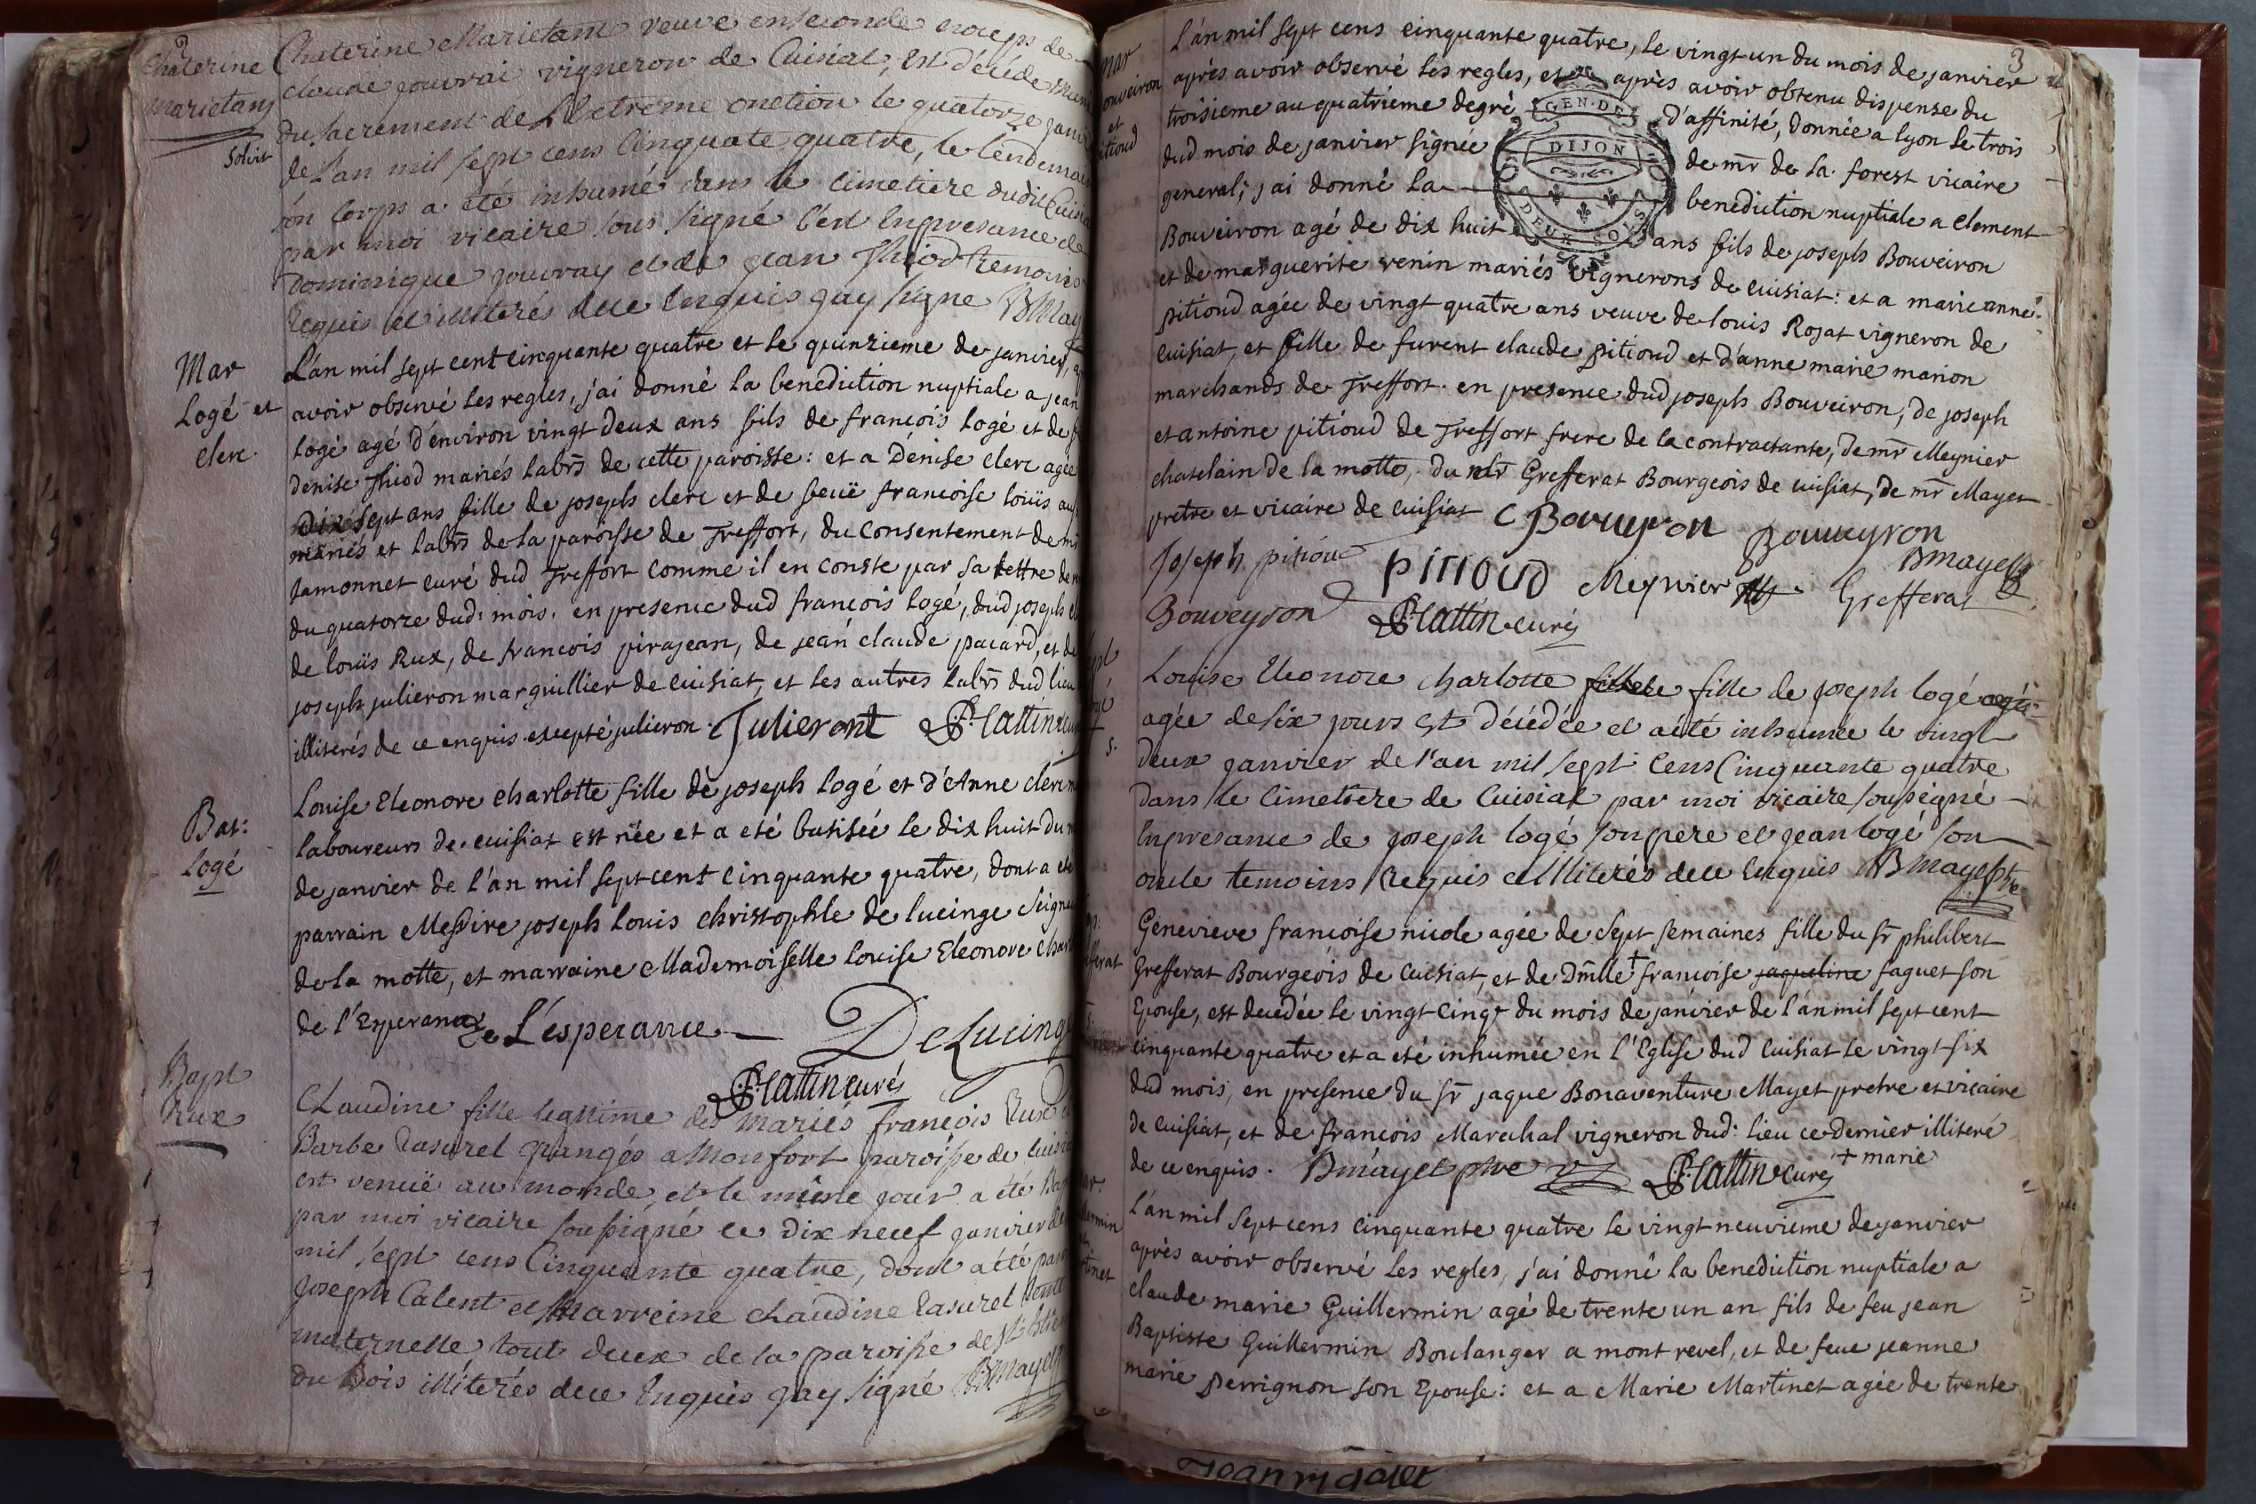 Chaterine
Marietans
solvit
Chaterine Marietans veuve en seconde noceps de
claude jouvrai vigneron de Cuisiat, Est décédé muni
du sacrement de L'extreme onction le quatorze janv
de L'an mil sept cens Cinquate quatre, le lendemain
son corps a été inhumé dans le cimetiere dudit Cuisia
par moi vicaire sous signé c'est Enpresance de
Dominique jouvray et de jean Thiod temoins
Requis et illiterés dece Enquis qay signe BMay
Mar
Logé et
clerc.
L'an mil sept cent cinquante quatre et le quinzieme de janvier,
avoir observé les regles, j'ai donné la benediction nuptiale a jean
logé agé d'environ vingt deux ans fils de françois Logé et de
Denise Thiod mariés labrs de cette paroisse: et a Dénise clerc agée
Dixsept ans fille de joseph clerc et de feuë francoise loüis au
mariés et labrs de la paroisse de Treffort, du consentement de mr
lamonnet curé dud Treffort comme il en conste par sa lettre de
du quatorze dud: mois. en presence dud françois logé, dud joseph cl
de loüis Rux, de françois pirajean, de jean claude pacard, et de
joseph julieron marguillier de cuisiat, et les autres labrs dud lieu
illiterés de ce enquis excepté julieron. Julieront P. Cattin curé
Bat:
Logé
Louise Eleonore charlotte fille de joseph Logé et d'Anne clerc
laboureurs de cuisiat est née et a eté batisée le dix huit du
de janvier de l'an mil sept cent cinquante quatre, dont a eté
parrain Messire joseph Louis christophle de lucinge Seigneu
de la motte, et marraine Mademoiselle Louise Eleonore Char
de l'Esperance De L'esperance DeLucinge
P. Cattin curé
Bapt
Rux
CLaudine fille legitime des mariés françois Rux
Barbe Tasurel grangés a Monfort paroisse de cuisia
est venuë au monde, et le même jour a été Bap
par moi vicaire soussigné ce dix neuf janvier de
mil sept cens Cinquante quatre, dont a été par
Joseph Calent et Marreine claudine Tasurel tante
maternelle tout deux de la paroisse de St Etien
du Bois illiterés dece Enquis qay signé BMayet
3
Mar
ouveiron
et
itioud
L'an mil sept cens cinquante quatre, le vingt un du mois de janvier
après avoir observé les regles, et après avoir obtenu dispense du
troisieme au quatrieme degré d'affinité, donnée a lyon le trois
dud mois de janvier signée de mr de la forest vicaire
general; j'ai donné la benediction nuptiale a clement
GEN. DE
DIJON
DEUX SOLS
Bouveiron agé de dix huit ans fils de joseph Bouveiron
et de marguerite renin mariés vignerons de cuisiat: et a marie anne
pitioud agée de vingt quatre ans veuve de louis Rojat vigneron de
cuisiat, et fille de furent claude pitioud et d'anne marie marion
marchands de Treffort. en presence dud joseph Bouveiron, de joseph
et antoine pitioud de Treffort frere de la contractante, de mr Meynier
chatelain de la motte, du mr Grefferat Bourgeois de cuisiat, de mr Mayet
pretre et vicaire de cuisiat C Bouveyron Bouveyron
Joseph pitiou PITIOUD Meynier Grefferat Bmayet
Bouveyron P. Cattin curé
Louise Eleonore charlotte fille de joseph logé
agée de six jours est décédée et a été inhumée le vingt
deux janvier de l'an mil sept cens Cinquante quatre
dans le Cimetiere de Cuisiat par moi vicaire soussigné
Enpresance de joseph logé son pere et jean logé son
oncle temoins Requis et illiterés dece Enquis BMayet ptre
fferat
Genevieve francoise nicole agée de sept semaines fille du sr philibert
Grefferat Bourgeois de cuisiat, et de Dmlle + francoise jaqueline faguet son
Epouse, est decedée le vingt cinq du mois de janvier de l'an mil sept cent
cinquante quatre et a eté inhumée en l'Eglise dud cuisiat le vingt six
dud mois, en presence du sr jaque Bonaventure Mayet pretre et vicaire
de cuisiat, et de françois Marechal vigneron dud: lieu ce dernier illiteré
de ce enquis. Bmayet ptre P. Cattin curé + marie
ar
lermin
tinet
L'an mil sept cens cinquante quatre le vingt neuvieme de janvier
après avoir observé les regles, j'ai donné la benediction nuptiale a
claude marie Guillermin agé de trente un an fils de feu jean
Baptiste Guillermin Boulanger a mont revel, et de feue jeanne
marie perrignon son Epouse: et a Marie Martinet agée de trente